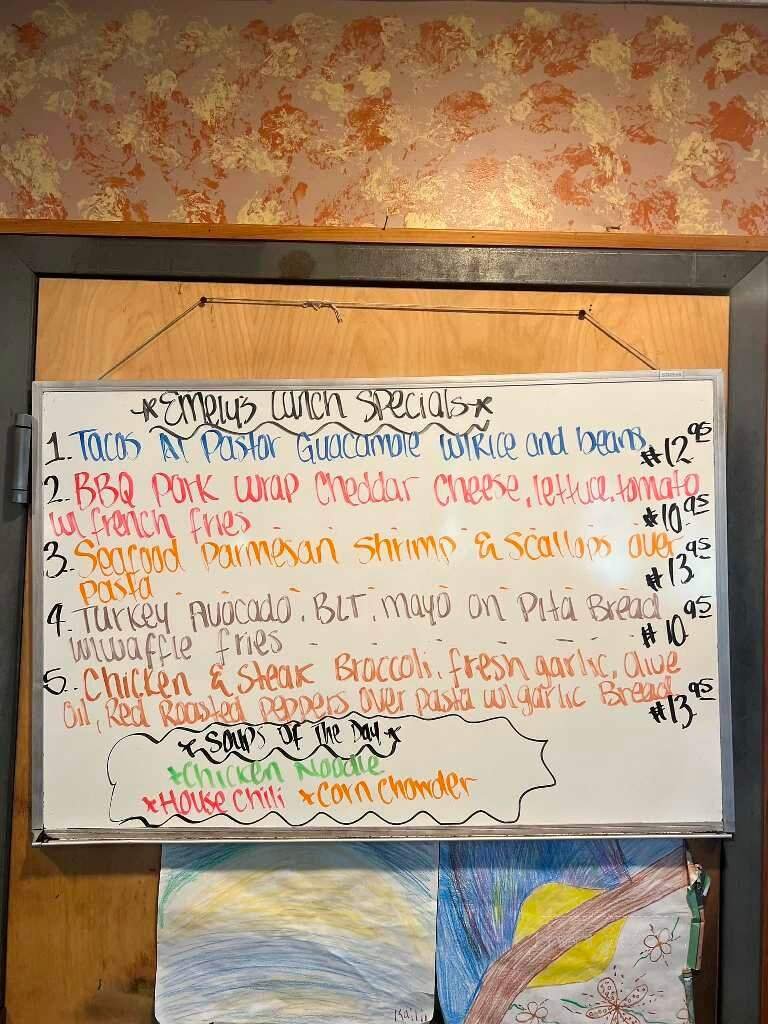 *Emely's Lunch Specials*
1. Tacos Al Pastor Guacamole w/Rice and beans $12.95
2. BBQ Pork Wrap Cheddar Cheese, lettuce, tomato
w/ french fries $10.95
3. Seafood Parmesan Shrimp & Scallops over
pasta $13.95
4. Turkey Avocado, BLT, mayo on Pita Bread
w/waffle fries $10.95
5. Chicken & Steak Broccoli, fresh garlic, Olive
Oil, Red Roasted Peppers over pasta w/garlic Bread $13.95
*Soups of the Day*
*Chicken Noodle
*House Chili *Corn Chowder